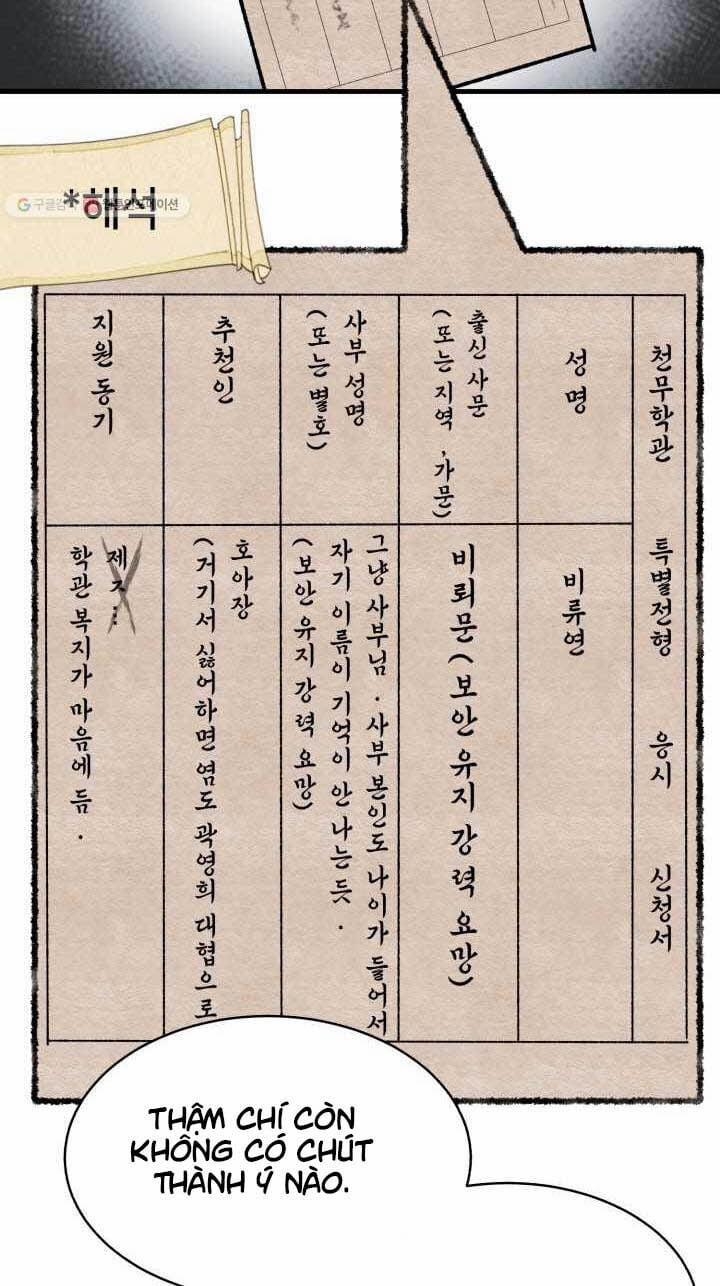 *해석
천무학관 특별전형 응시 신청서
성명
비류연
출신 사문
(또는 지역, 가문)
비뢰문(보안 유지 강력 요망)
사부 성명
(또는 별호)
그냥 사부님. 사부 본인도 나이가 들어서
자기 이름이 기억이 안 나는 듯.
(보안 유지 강력 요망)
추천인
호아장
(거기서 싫어하면 염도 곽영희 대협으로
지원 동기
제ㅈ...
학관 복지가 마음에 듬.
THẬM CHÍ CÒN
KHÔNG CÓ CHÚT
THÀNH Ý NÀO.